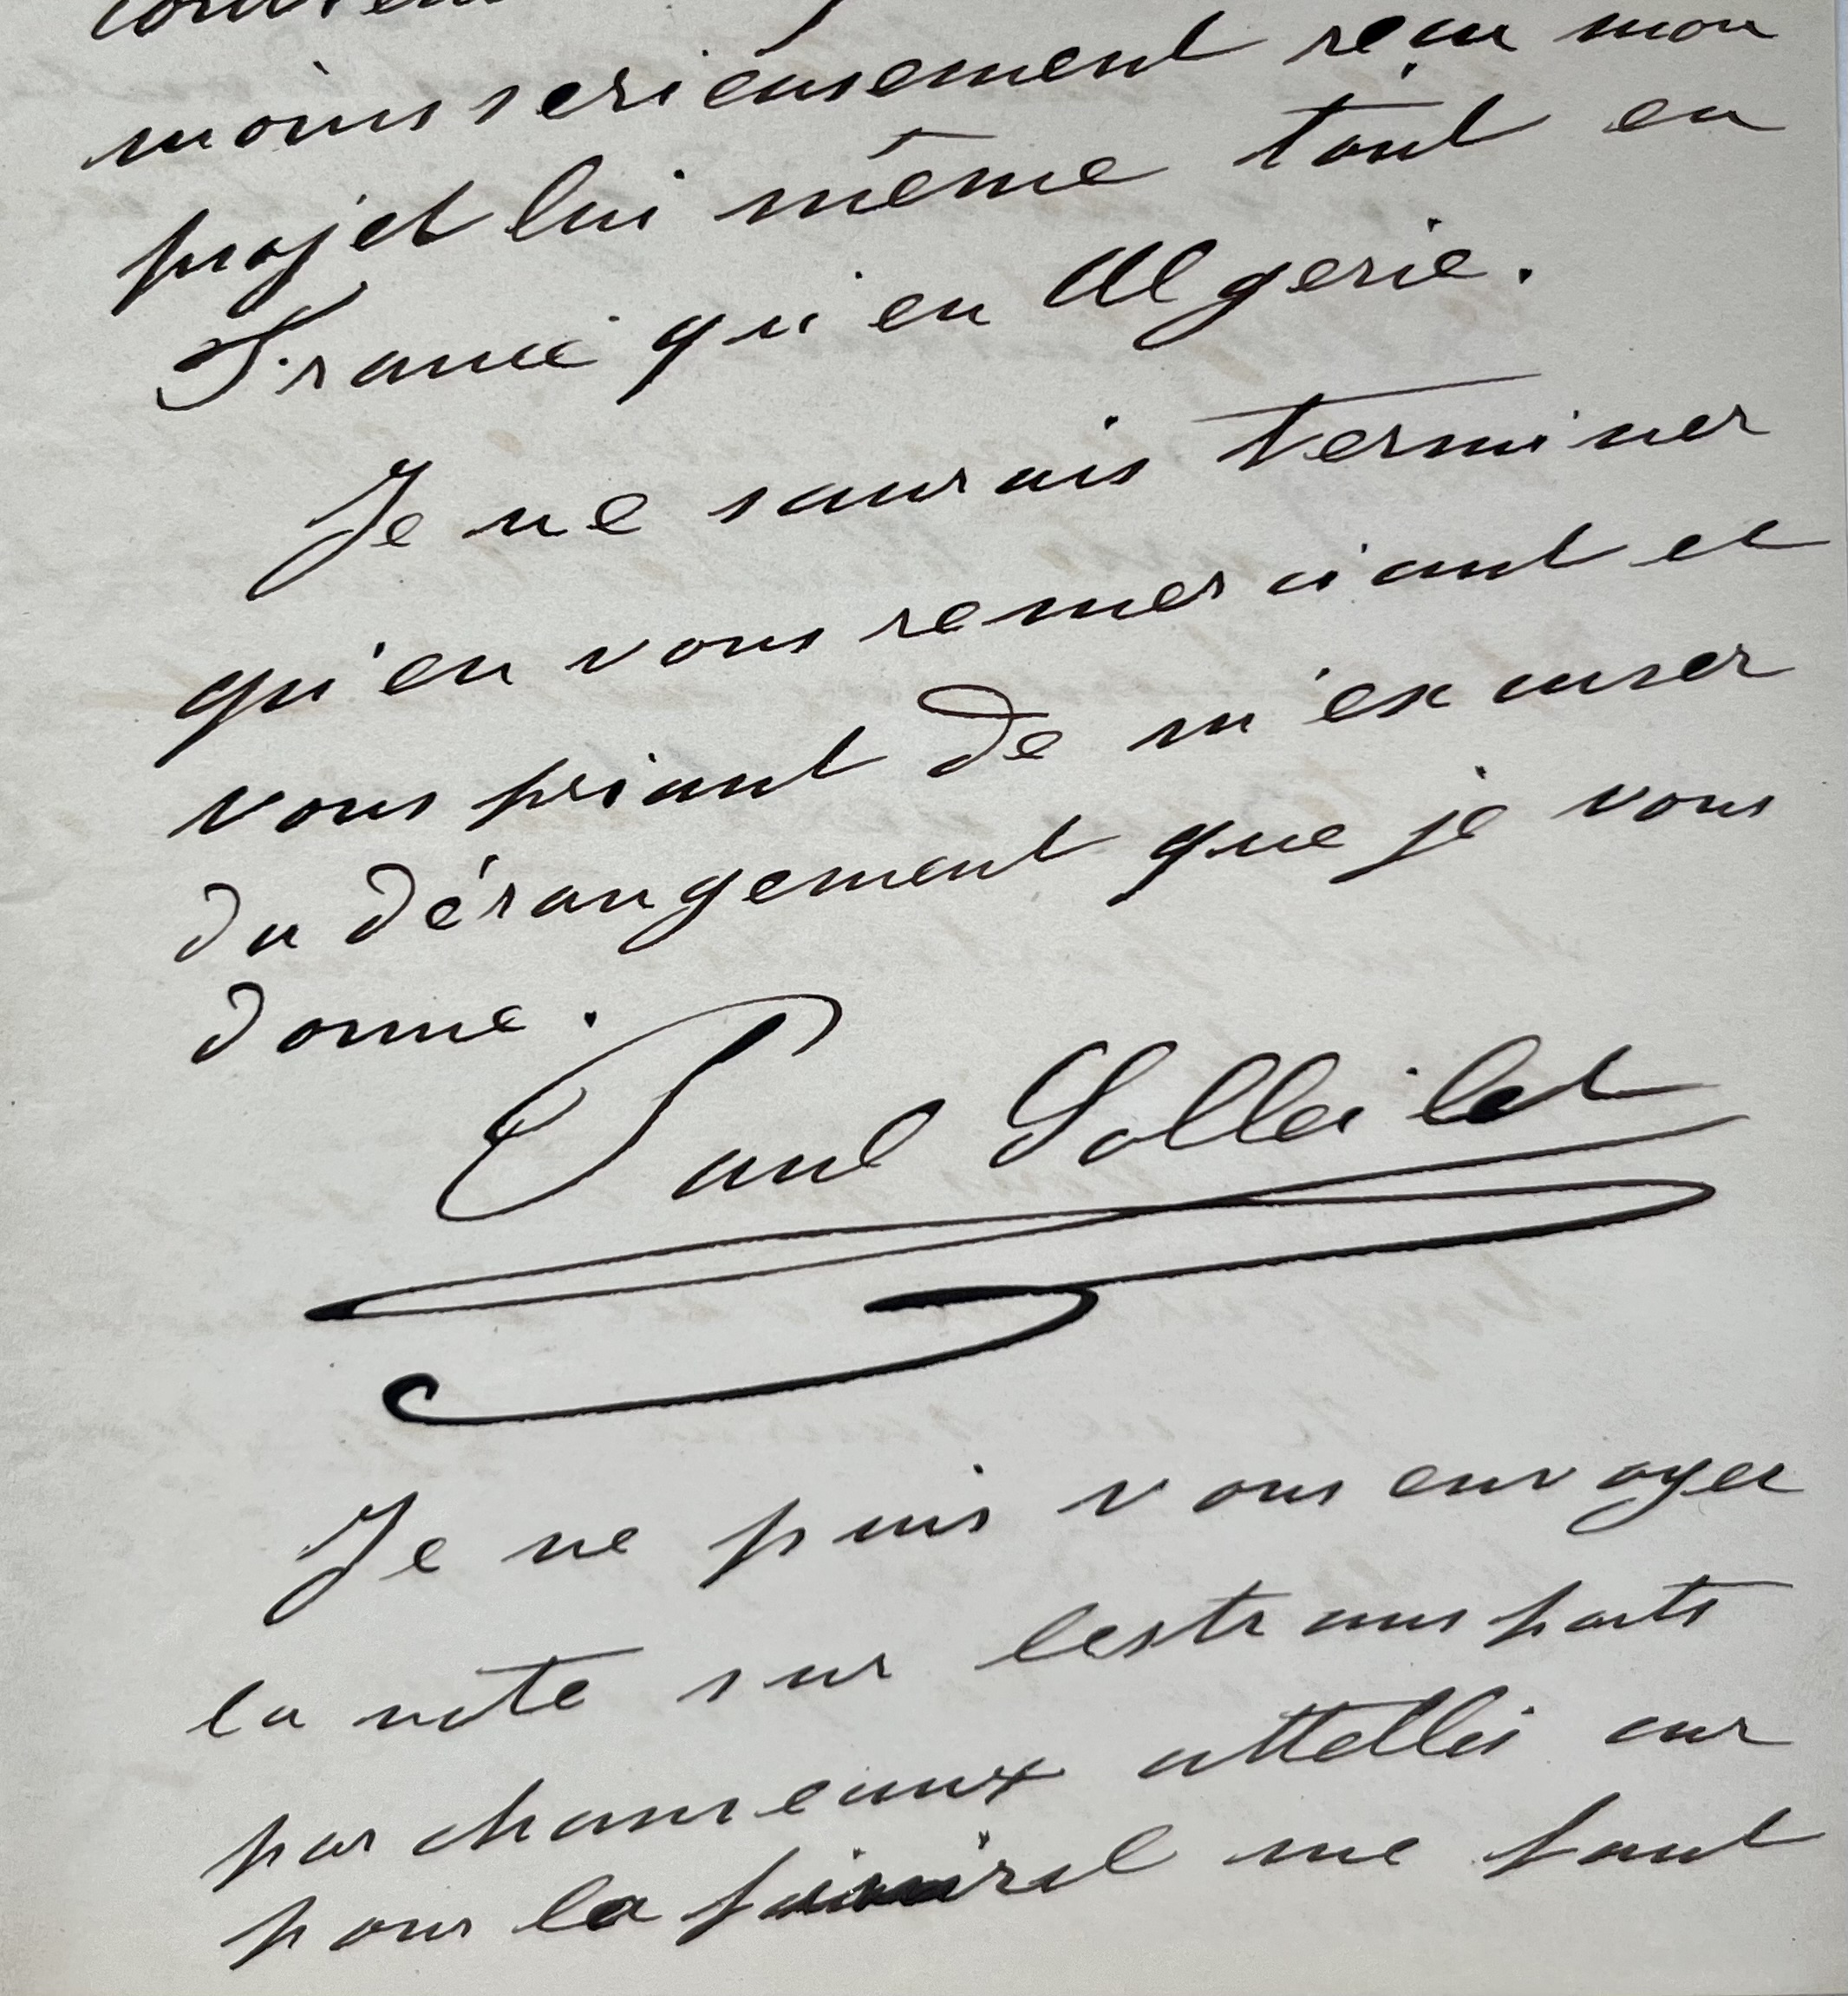 moins serieusement reçu mon
projet lui même tant en
France qu'en Algerie.
Je ne saurais terminer
qu'en vous remerciant et
vous priant de m'excuser
du dérangement que je vous
donne.
Paul Solleillet
Je ne puis vous envoyer
la note sur les transports
par chameaux attellés car
pour la faire il me faut